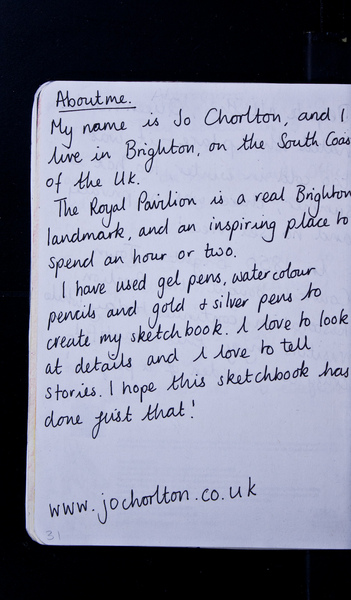 About me.
My name is Jo Chorlton, and I
live in Brighton, on the South Coas
of the UK.
The Royal Pavilion is a real Brighton
landmark, and an inspiring place to
spend an hour or two.
I have used gel pens, watercolour
pencils and gold & silver pens to
create my sketchbook. I love to look
at details and I love to tell
stories. I hope this sketchbook has
done just that!
www.jochorlton.co.uk
31